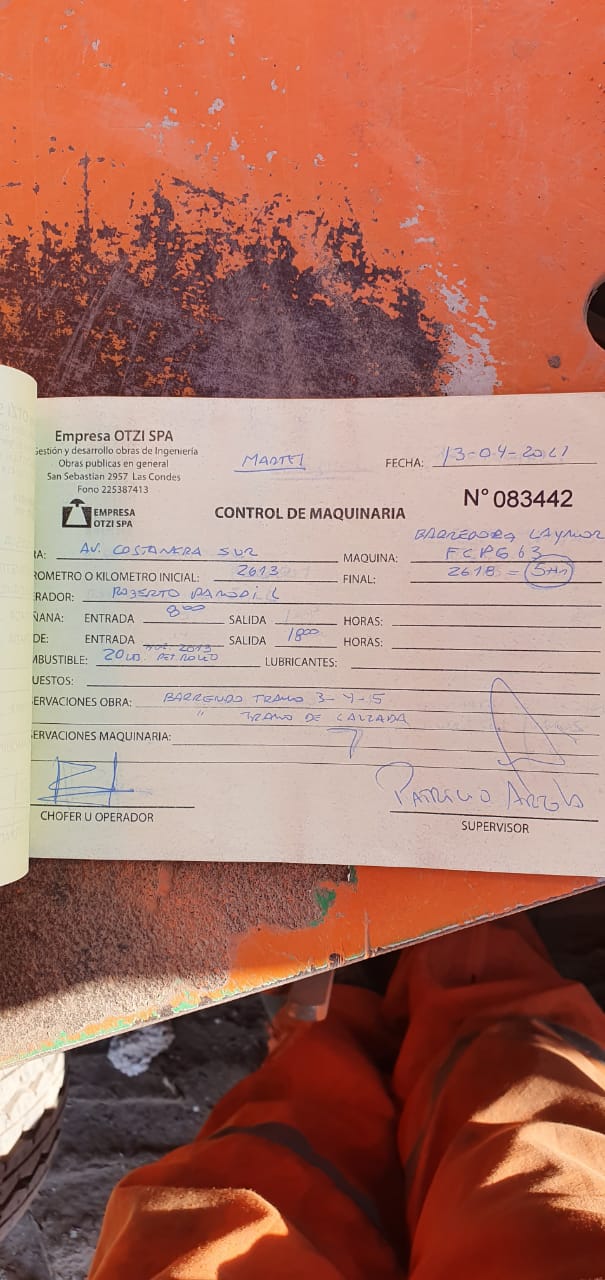 Empresa OTZI SPA
Gestión y desarrollo obras de Ingeniería
Obras publicas en general
San Sebastian 2957 Las Condes
Fono 225387413
EMPRESA
OTZI SPA
MARTES
FECHA: 13-04-2021
N° 083442
CONTROL DE MAQUINARIA
BARREDORA LAYMOR
RA: AV. COSTANERA SUR MAQUINA: FCPG63
ROMETRO O KILOMETRO INICIAL: 2613 FINAL: 2618 = 5Hrs
RADOR: ROBERTO
ÑANA: ENTRADA 8:00 SALIDA HORAS:
DE: ENTRADA SALIDA 18:00 HORAS:
MBUSTIBLE: 20 PETROLEO LUBRICANTES:
UESTOS:
ERVACIONES OBRA: BARRENDO TRAMO 3-4-5
" TRAMO DE CALZADA
ERVACIONES MAQUINARIA:
CHOFER U OPERADOR
PATRICIO
SUPERVISOR